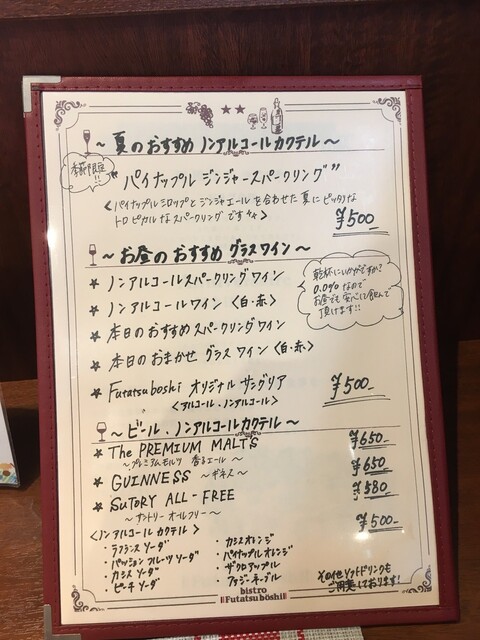 ～夏のおすすめ ノンアルコールカクテル～
季節限定
"パイナップル ジンジャースパークリング"
<パイナップルシロップとジンジャエールを合わせた夏にピッタリな
トロピカルなスパークリングです>
¥500-
～お昼のおすすめ グラスワイン～
★ ノンアルコールスパークリングワイン
★ ノンアルコールワイン <白・赤>
★ 本日のおすすめスパークリングワイン
★ 本日のおまかせ グラスワイン <白・赤>
★ Futatsuboshi オリジナル サングリア
<アルコール・ノンアルコール>
¥500-
乾杯にいかがですか?
0.0%なので
お昼でも安心して飲んで
頂けます!!
～ビール・ノンアルコールカクテル～
★ The PREMIUM MALT'S ¥650-
～プレミアムモルツ 香るエール～
★ GUINNESS ～ギネス～ ¥650
★ SuTORY ALL-FREE ¥580
～サントリー オールフリー～
¥500-
<ノンアルコールカクテル>
・ラフランスソーダ
・パッションフルーツソーダ
・カシスソーダ
・ピーチソーダ
・カシスオレンジ
・パイナップルオレンジ
・ザクロアップル
・ファジーネーブル
その他ソフトドリンクも
ご用意しております!
bistro
Futatsuboshi